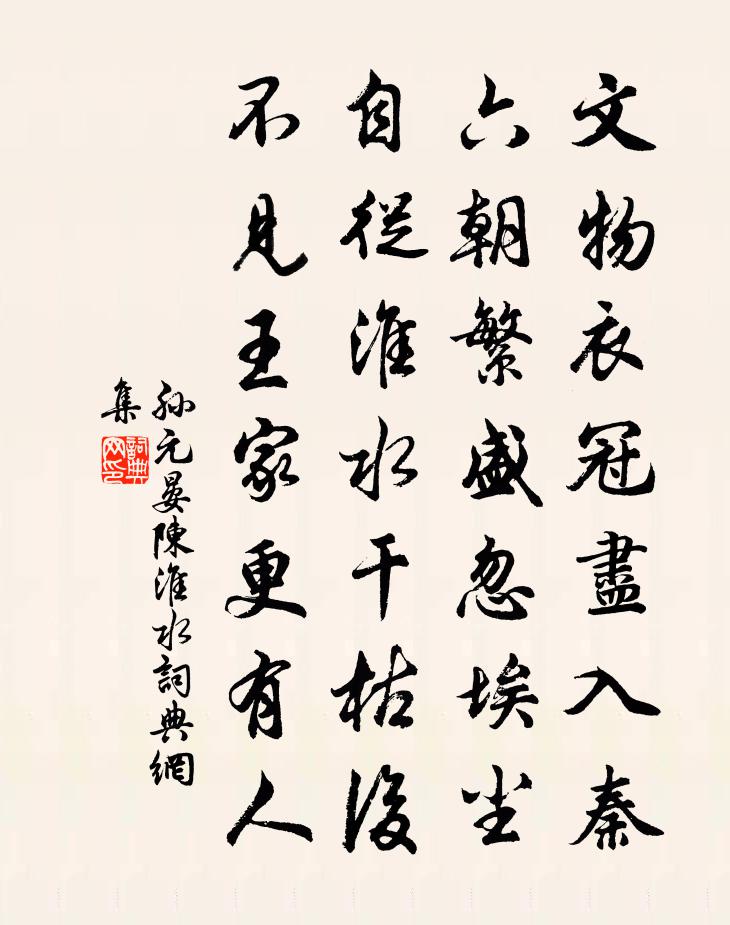 文物衣冠盡入秦
六朝繁盛忽埃尘
自從淮水干枯後
不見王家更有人
孙元晏陳淮水詞典網
集
詞典
网印